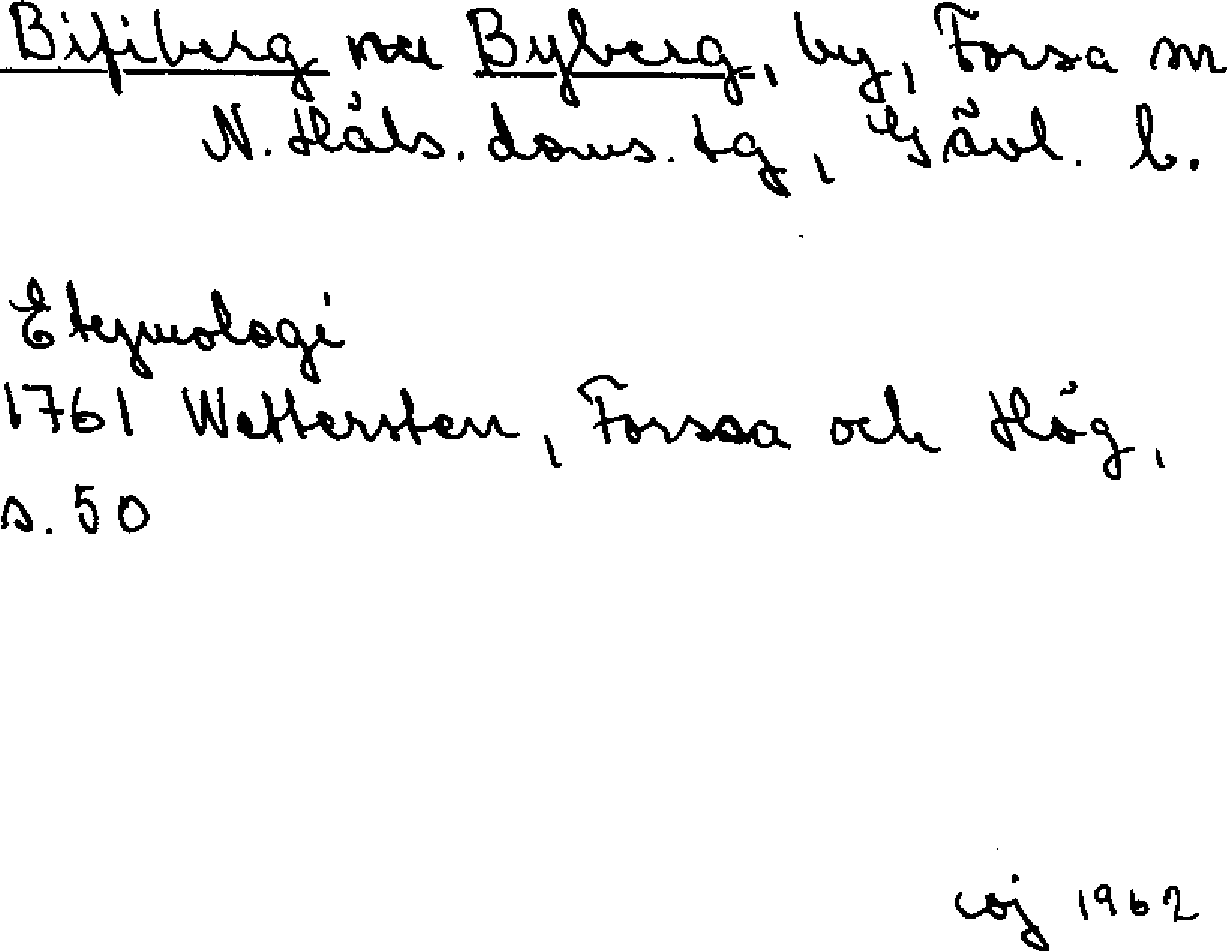 Bifiberg nu Byberg, by, Forsa sn
N. Häls. doms. tg, Gävl. l.
Etymologi
1761 Wettersten, Forssa och Hög,
s. 50
coj 1962